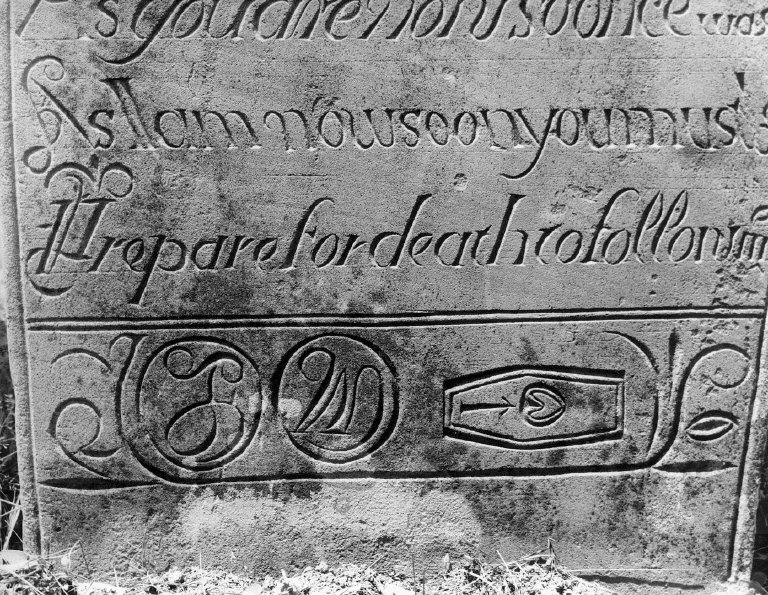 As you are now so once was
As I am now soon you must
Prepare for death to follow